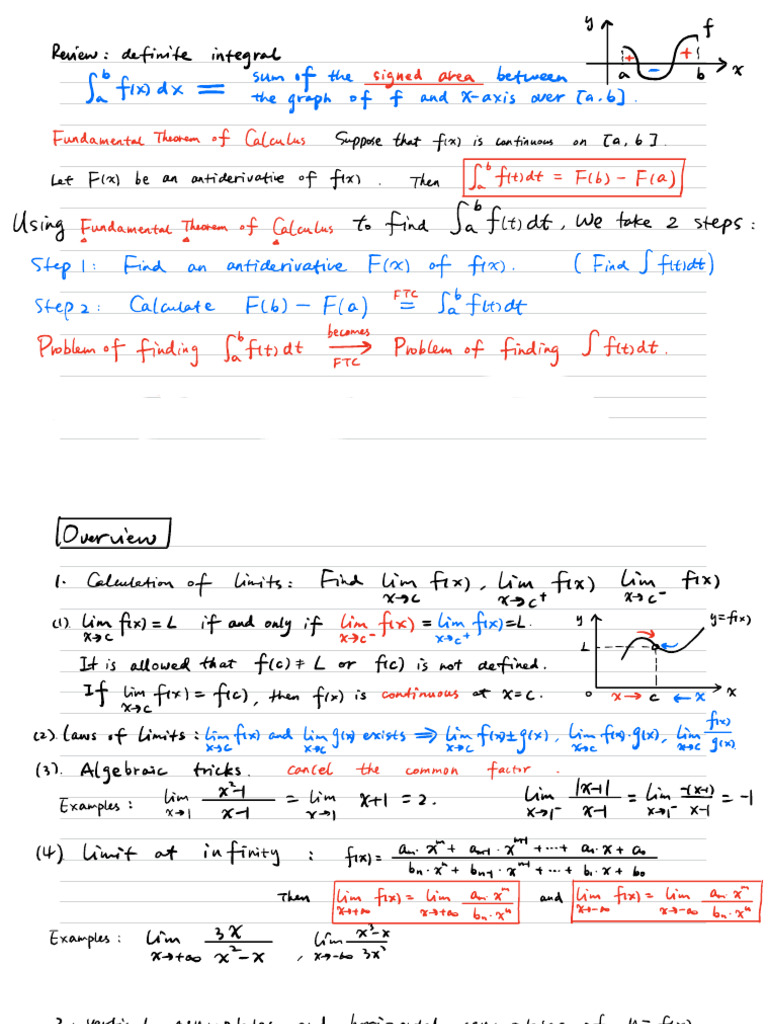 y f
Review: definite integral
+ − +
a b x
∫_a^b f(x) dx = sum of the signed area between
the graph of f and x-axis over [a, b].
Fundamental Theorem of Calculus Suppose that f(x) is continuous on [a, b].
Let F(x) be an antiderivatie of f(x). Then ∫_a^b f(t)dt = F(b) − F(a)
Using Fundamental Theorem of Calculus to find ∫_a^b f(t)dt, we take 2 steps:
Step 1: Find an antiderivative F(x) of f(x). (Find ∫ f(t)dt)
Step 2: Calculate F(b) − F(a) =^{FTC} ∫_a^b f(t)dt
Problem of finding ∫_a^b f(t)dt becomes → FTC Problem of finding ∫ f(t)dt.
Overview
1. Calculation of limits: Find lim_{x→c} f(x), lim_{x→c⁺} f(x) lim_{x→c⁻} f(x)
(1). lim_{x→c} f(x) = L if and only if lim_{x→c⁻} f(x) = lim_{x→c⁺} f(x) = L.
y y=f(x)
L
It is allowed that f(c) ≠ L or f(c) is not defined.
If lim_{x→c} f(x) = f(c), then f(x) is continuous at x=c.
o x → c ← x x
(2). Laws of Limits: lim_{x→c} f(x) and lim_{x→c} g(x) exists ⇒ lim_{x→c} f(x)±g(x), lim_{x→c} f(x)·g(x), lim_{x→c} f(x)/g(x).
(3). Algebraic tricks. cancel the common factor.
Examples: lim_{x→1} (x²−1)/(x−1) = lim_{x→1} x+1 = 2. lim_{x→1⁻} |x−1|/(x−1) = lim_{x→1⁻} −(x−1)/(x−1) = −1
(4) Limit at infinity: f(x) = (a_m·x^m + a_{m-1}·x^{m-1} + ... + a_1·x + a_0)/(b_n·x^n + b_{n-1}·x^{n-1} + ... + b_1·x + b_0)
Then lim_{x→+∞} f(x) = lim_{x→+∞} (a_m·x^m)/(b_n·x^n) and lim_{x→−∞} f(x) = lim_{x→−∞} (a_m·x^m)/(b_n·x^n)
Examples: lim_{x→+∞} 3x/(x²−x), lim_{x→−∞} (x³−x)/(3x³)